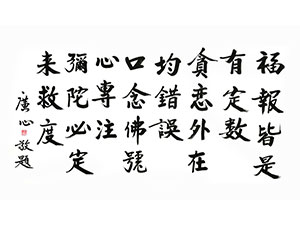 福報皆是
有定數
貪戀外在
均錯誤
口念佛號
心專注
彌陀必定
来救度
廣心敬題